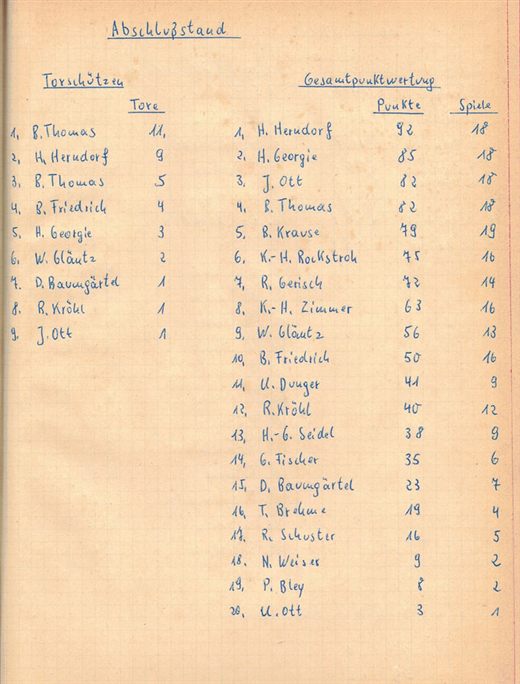 Abschlußstand
Torschützen
Tore
1, B. Thomas 11,
2, H. Herndorf 9
3, B. Thomas 5
4, B. Friedrich 4
5, H. Georgie 3
6, W. Gläntz 2
7. D. Baumgärtel 1
8, R. Kröhl 1
9. J. Ott 1
Gesamtpunktwertung
Punkte Spiele
1, H. Herndorf 92 18
2. H. Georgie 85 18
3, J. Ott 82 18
4, B. Thomas 82 18
5, B. Krause 79 19
6, K.-H. Rockstroh 75 16
7, R. Gerisch 72 14
8, K.-H. Zimmer 63 16
9, W. Gläntz 56 13
10, B. Friedrich 50 16
11, U. Dunger 41 9
12, R. Kröhl 40 12
13, H.-G. Seidel 38 9
14, G. Fischer 35 6
15, D. Baumgärtel 23 7
16, T. Brehme 19 4
17, R. Schuster 16 5
18. N. Weiser 9 2
19, P. Bley 8 2
20, U. Ott 3 1